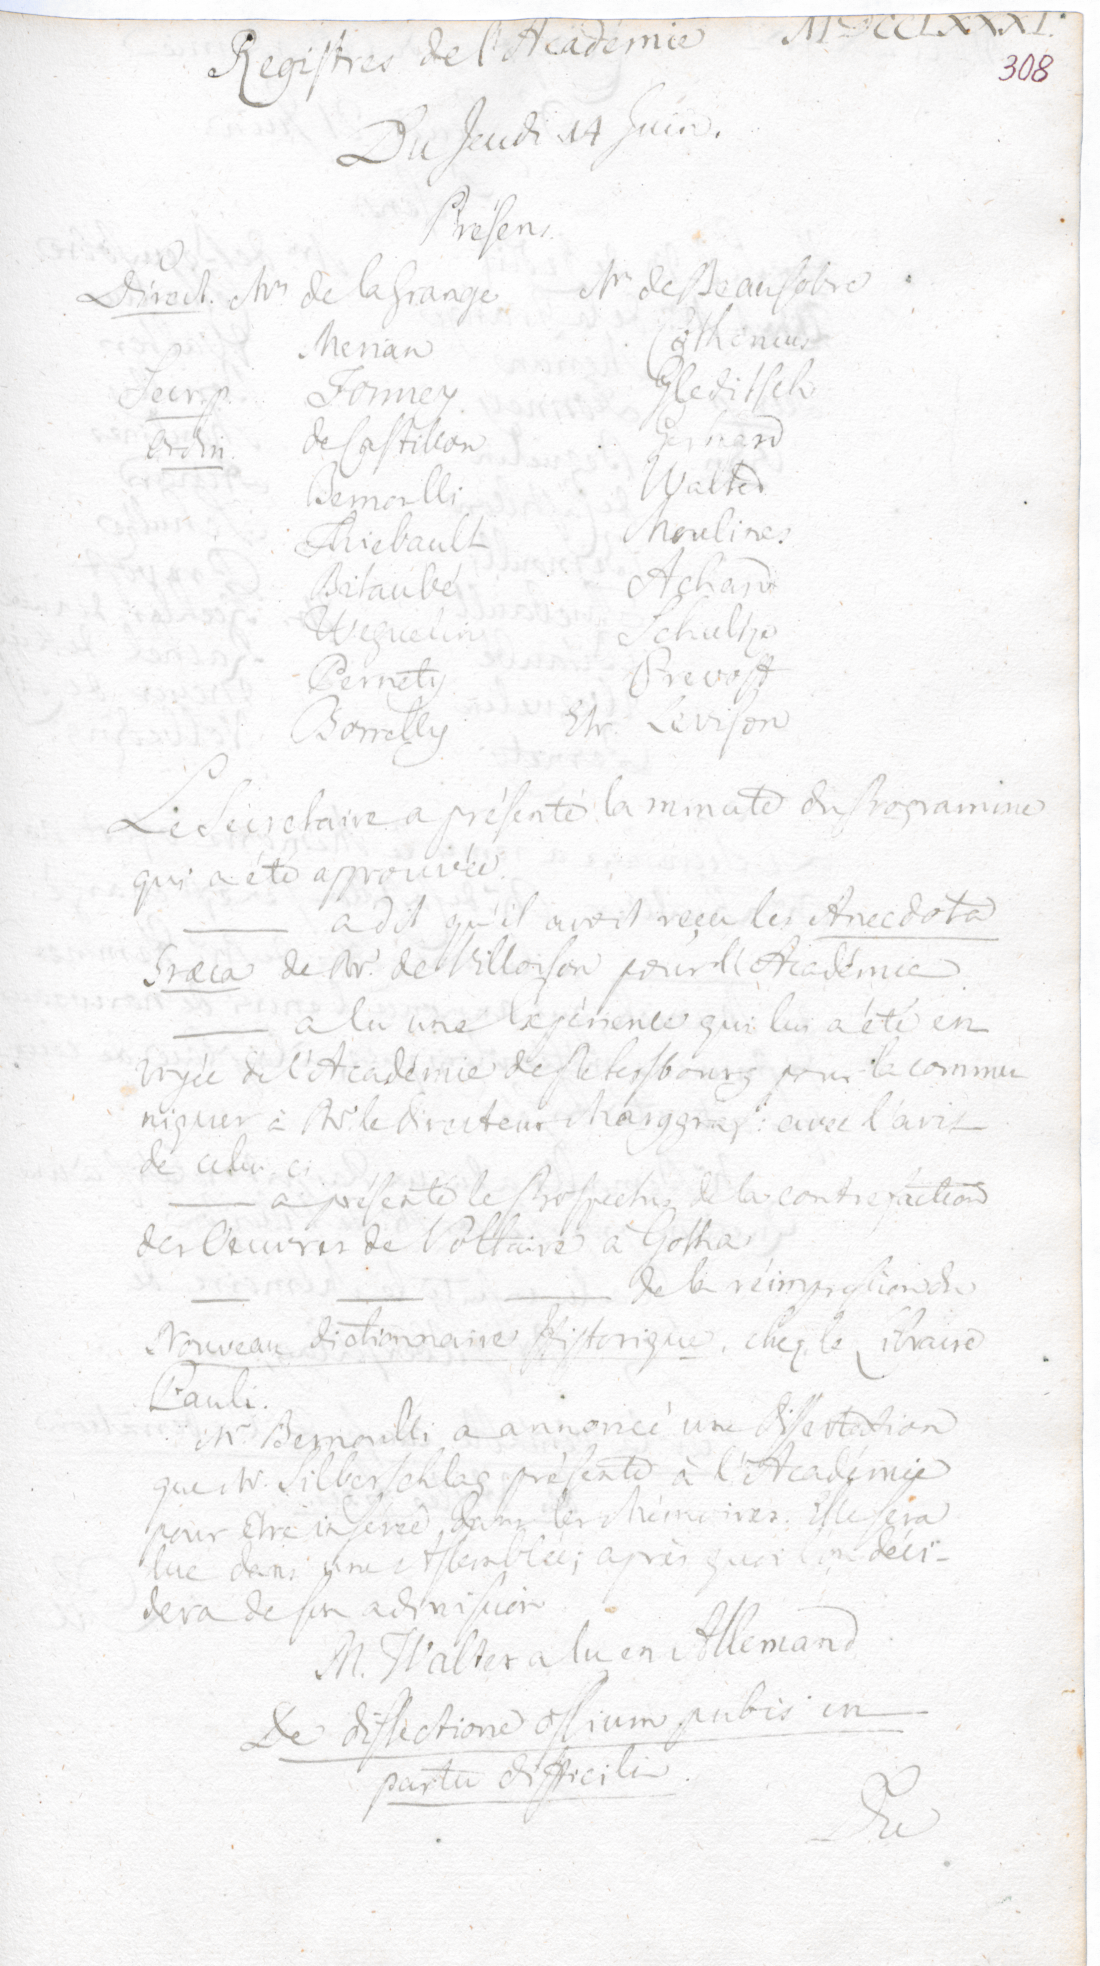 Registres de l'Académie MDCCLXXXI.
308
Du Jeudi 14 Juin.
Présens.
Direct. Mrs de la Grange Mr de Beausobre
Merian Cothenius
Secr. p. Formey Gleditsch
Ordin. de Castillon Gerhard
Bernoulli Walter
Thiebault Moulines
Bitaubé Achard
Weguelin Schultze
Pernety Prevost
Borrelly Etr. Levison
Le Sécretaire a présenté la minute du Programme
qui a été aprouvée.
—— a dit qu'il avoit reçu les Anecdota
Græca de Mr. de Villoison pour l'Académie
—— a lu une expérience qui lui a été en
voyée de l'Académie de Petersbourg pour la commu
niquer à Mr. le Directeur Marggraf: avec l'avis
de celui ci
—— a présenté le Prospectus de la contrefaction
des Oeuvres de Voltaire à Gotha
—— —— —— de la réimpression du
Nouveau dictionnaire Historique, chez le Libraire
Pauli.
Mr. Bernoulli a annoncé une dissertation
que Mr. Silberschlag présente à l'Académie
pour être inserée dans les Mémoires. Elle sera
lue dans une Assemblée; après quoi l'on déci-
dera de son admission
M. Walter a lu en Allemand
De dissectione ossium pubis in
partu difficili.
Du